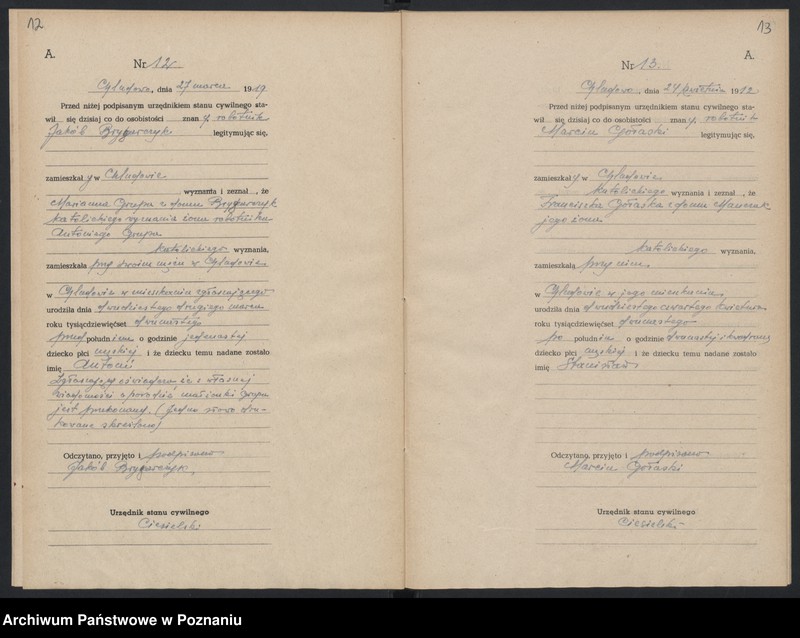 12
A.
Nr 12.
, dnia 27 marca 19
Przed niżej podpisanym urzędnikiem stanu cywilnego sta-
wił się dzisiaj co do osobistości znany, robotnik
Jakób Brygarczyk legitymując się,
zamieszkały w
wyznania i zeznał, że
Marianna z domu Brygarczyk
katolickiego wyznania żona robotnika
Antoniego
katolickiego wyznania,
zamieszkała przy swoim mężu w
w w mieszkaniu zgłaszającego
urodziła dnia dwudziestego drugiego marca
roku tysiącdziewięćset dwunastego
przed południem o godzinie jedenastej
dziecko płci męskiej i że dziecku temu nadane zostało
imię Antoni
Zgłaszający oświadcza że z własnej
wiadomości o porodzie
jest przekonany. (Jedno słowo dru-
kowane skreślono)
Odczytano, przyjęto i podpisano
Jakób Brygarczyk,
Urzędnik stanu cywilnego
Ciesielski
13
A.
Nr 13.
, dnia 24 kwietnia 1912
Przed niżej podpisanym urzędnikiem stanu cywilnego sta-
wił się dzisiaj co do osobistości znany, robotnik
Marcin Góraski legitymując się,
zamieszkały w
katolickiego wyznania i zeznał, że
Franciszka Góraska z domu
jego żona
katolickiego wyznania,
zamieszkała przy nim
w w jego mieszkaniu
urodziła dnia dwudziestego czwartego kwietnia
roku tysiącdziewięćset dwunastego
po południu o godzinie
dziecko płci męskiej i że dziecku temu nadane zostało
imię Stanisław
Odczytano, przyjęto i podpisano
Marcin Góraski
Urzędnik stanu cywilnego
Ciesielski
Archiwum Państwowe w Poznaniu